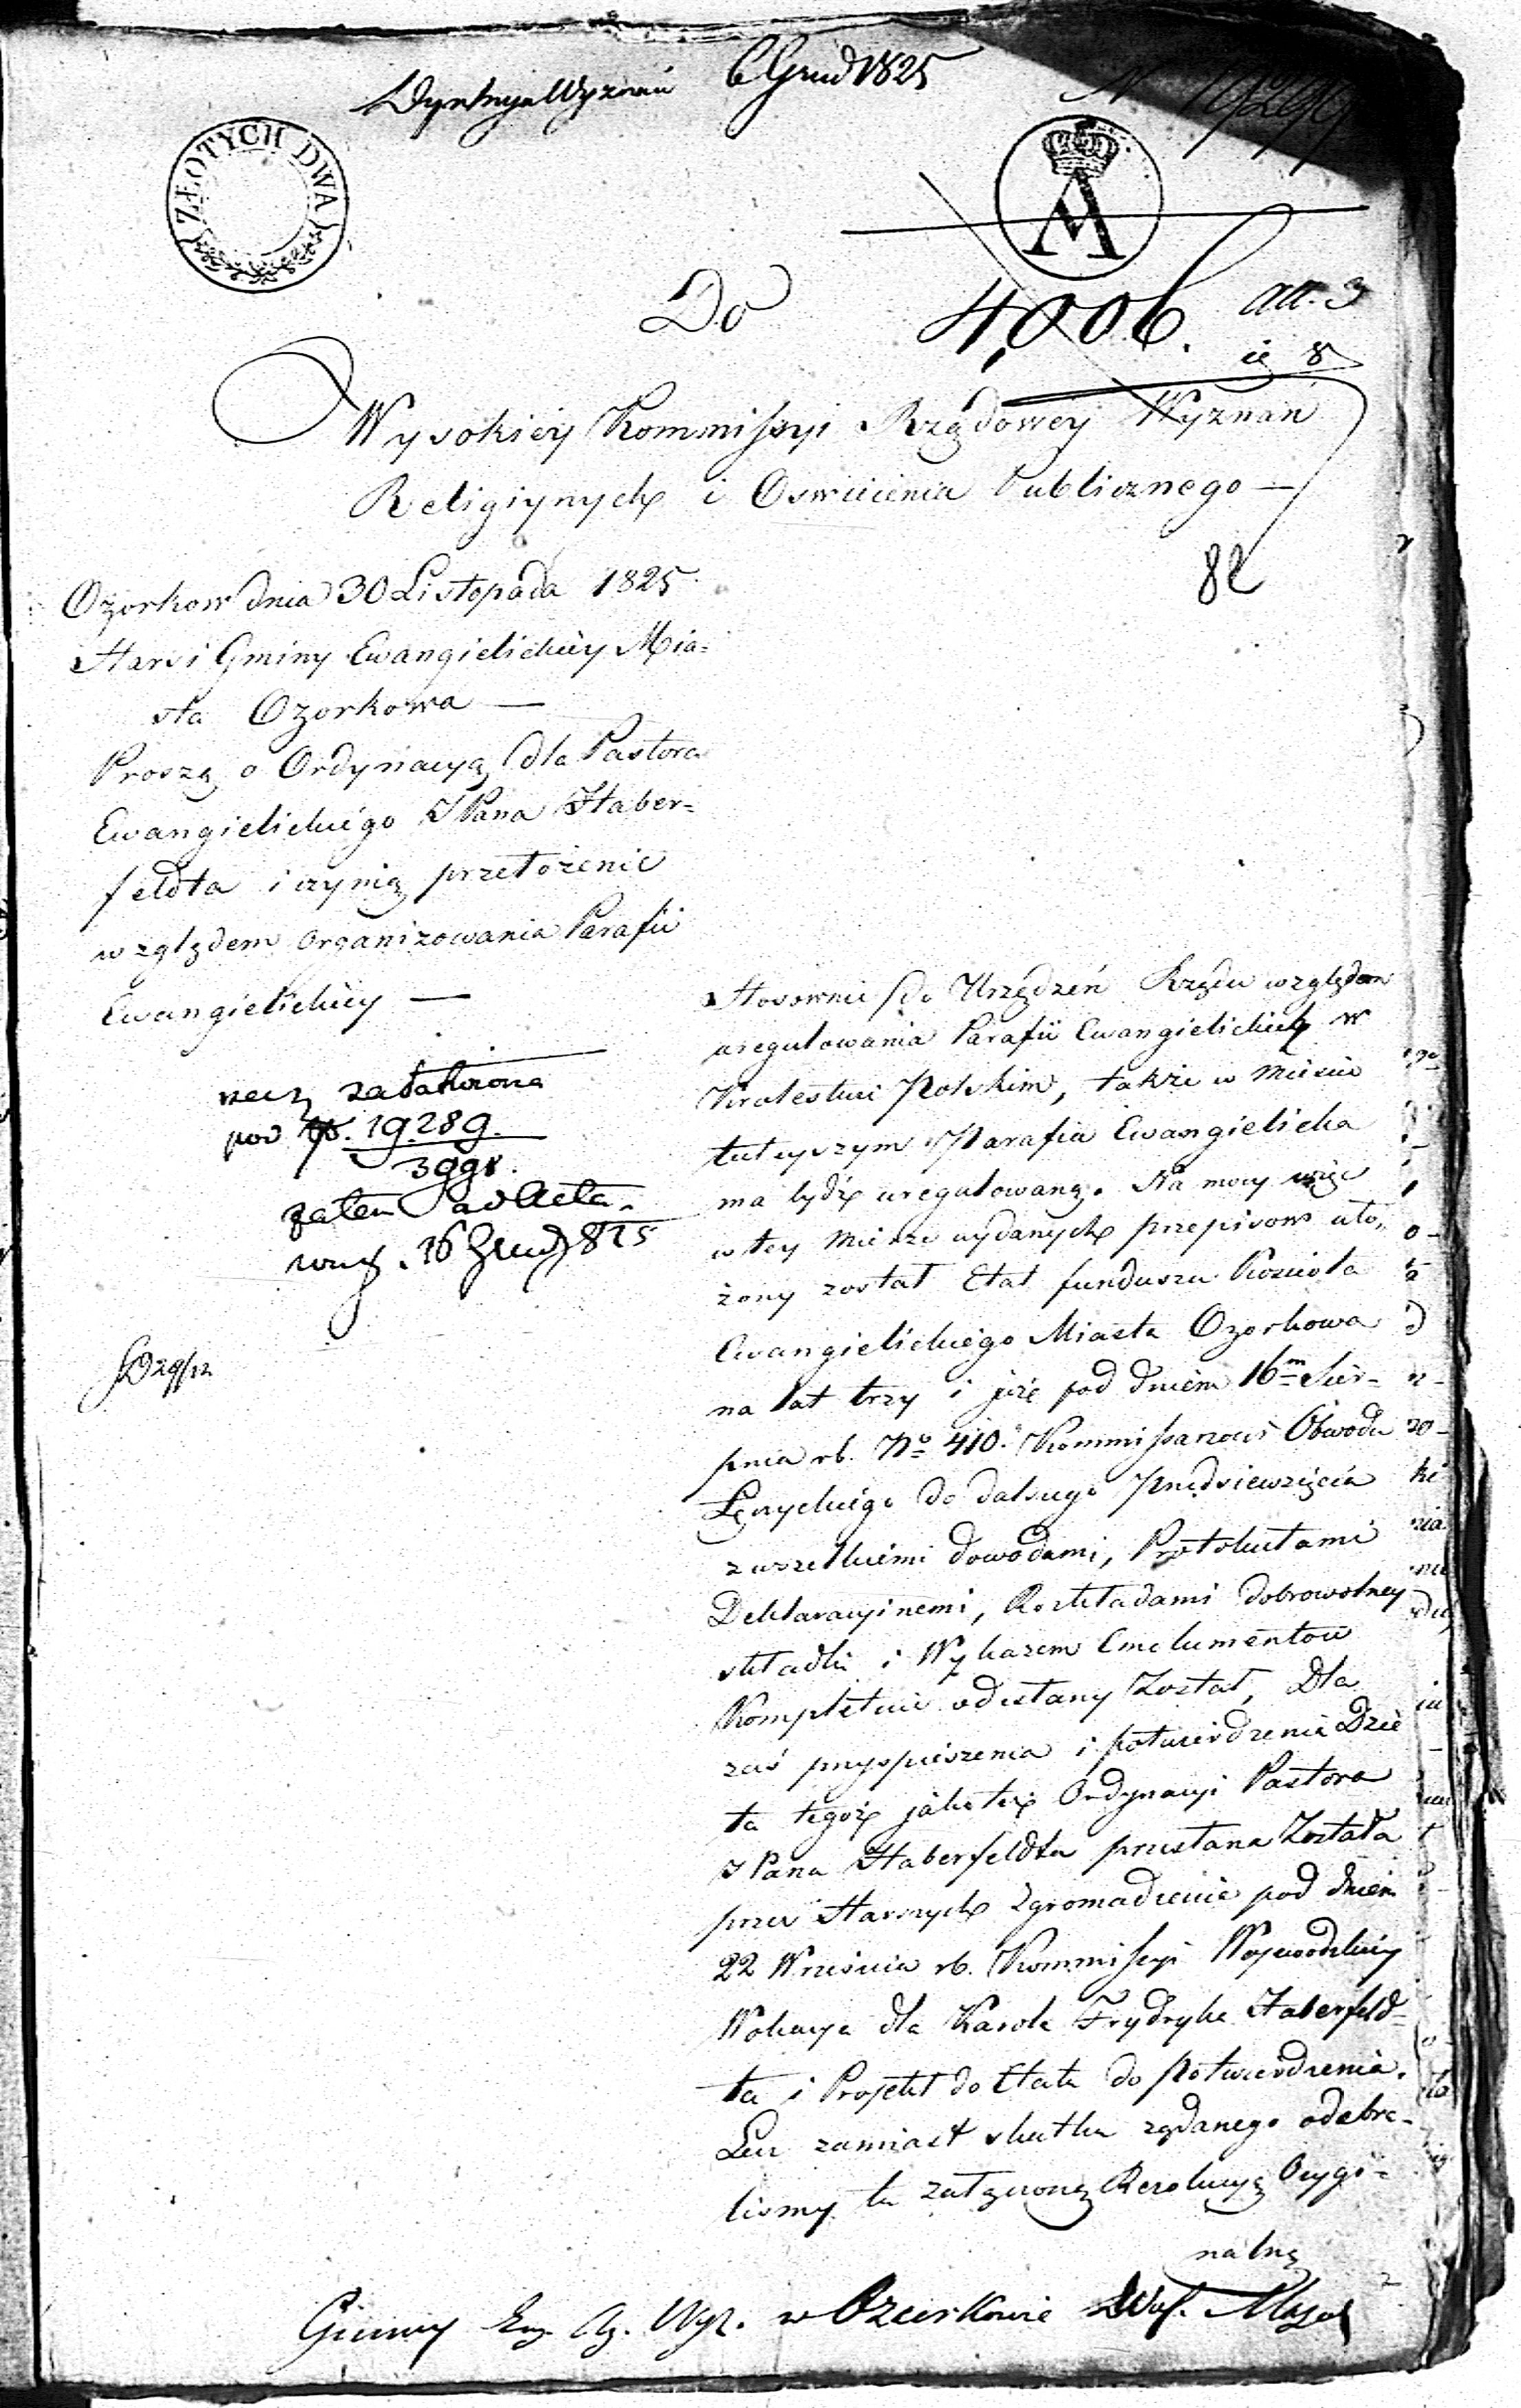 Dyrekcya Wyznań 6 Grud 1825
ZŁOTYCH DWA
M
Do
4,006. all. 3
82
Wysokiéy Kommissyi Rządowéy Wyznań
Religiynych i Oswiécenia Publicznego —
Ozorkow dnia 30 Listopada 1825
Starsi Gminy Ewangielickiéy Mia=
sta Ozorkowa —
Proszą o Ordynacyą dla Pastora
Ewangielickiégo JPana Haber=
feldta i czynią przełożenié
względem organizowania Parafii
Ewangielickiéy —
rzecz załatwiona
pod N. 19289.
3998.
zatem ad Acta.
16 Grud 825
Stosownie do Urządzeń Rządu względem
uregulowania Parafii Ewangielickich w
Krolestwi Polskim, także w Miéscie
tuteyszym Parafia Ewangielicka
ma bydź uregulowaną. Na mocy więc
w tey mierze wydanych przepisow uło„
żony został Etat funduszu Kościoła
Ewangielickiégo Miasta Ozorkowa
na lat trzy i już pod dniém 16m Siér=
pnia rb. No 410. Kommissarzowi Obwodu
Łęczyckiégo do dalszego przedsiewzięcia
z wszelkiémi dowodami, Protokułami
Deklaracyinemi, Rozkładami dobrowolney
składki i Wykazem Emolumentow
Kompletnie odesłany Został, Dla
zaś przyspieszenia i potwierdzenia Dzié
ła tegoż jakoteż Ordynacyi Pastora
JPana Haberfeldta przesłana Została
przez Starszych Zgromadzenie pod dniém
22 Wrzesnia rb. Kommissyi Woiewodzkiéy
Wokacya dla Karola Frydryka Haberfeld=
ta i Projekt do Etatu do potwierdzenia.
Lecz zamiast skutku ządanego odebra=
lismy tu załączoną Rezolucyą Orygi=
nalną
Gminy Ew. Ag. Wyz. w Ozorkowie Woj. Maz.